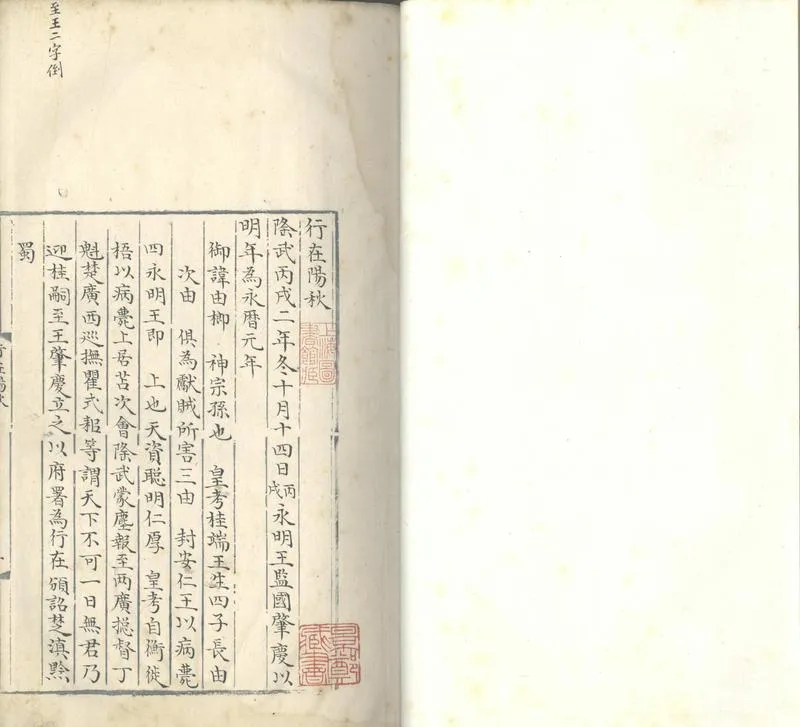 行在陽秋
隆武丙戌二年冬十月十四日丙戌永明王監國肇慶以
明年為永曆元年
御諱由榔 神宗孫也 皇考桂端王生四子長由
次由 俱為獻賊所害三由 封安仁王以病薨
四永明王即 上也天資聰明仁厚 皇考自衡徙
梧以病薨上居苫次會隆武蒙塵報至兩廣摠督丁
魁楚廣西巡撫瞿式耜等謂天下不可一日無君乃
迎桂嗣至王肇慶立之以府署為行在頒詔楚滇黔
蜀
至王二字倒
上海圖書館藏
行在陽秋